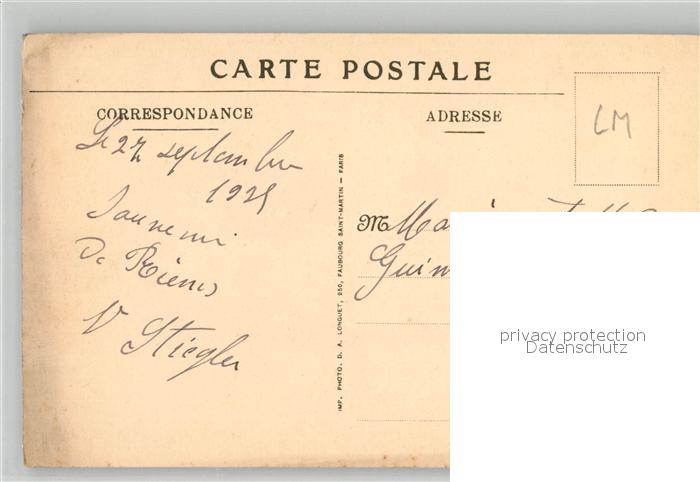 CARTE POSTALE
CORRESPONDANCE
ADRESSE
LM
Le 27 septembre
1925
Souvenir
De Reims
V Stiegler
IMP. PHOTO. D. A. LONGUET, 250, FAUBOURG SAINT-MARTIN — PARIS
M
privacy protection
Datenschutz